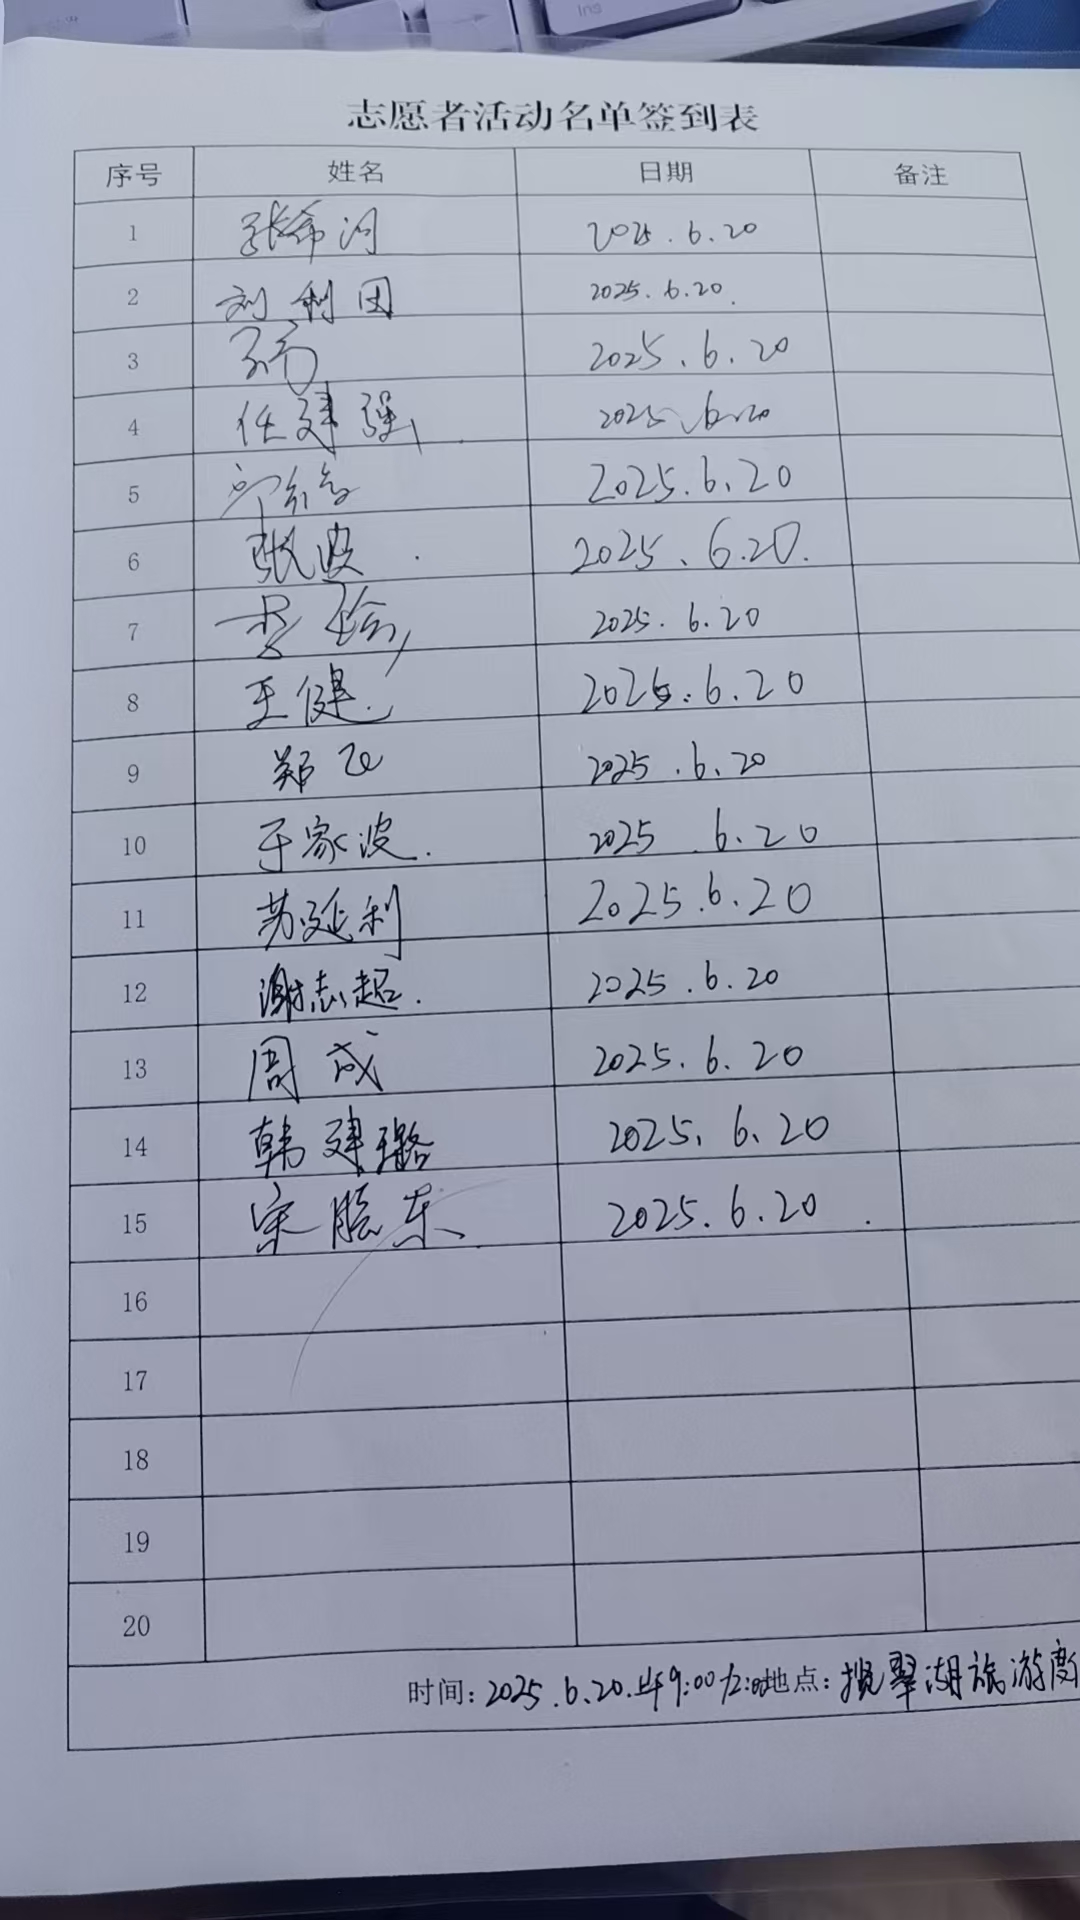 Ins
志愿者活动名单签到表
序号 姓名 日期 备注
1 张希河 2025.6.20
2 刘利团 2025.6.20.
3 2025.6.20
4 任建强 2025.6.20
5 2025.6.20
6 张波 2025.6.20.
7 李 2025.6.20
8 王健. 2025.6.20
9 郑飞 2025.6.20
10 于家波. 2025.6.20
11 苏延利 2025.6.20
12 谢志超. 2025.6.20
13 周成 2025.6.20
14 韩建璐 2025.6.20
15 宋晓东 2025.6.20.
16
17
18
19
20
时间: 2025.6.20.上午9:00 12:00 地点: 揽翠湖旅游度